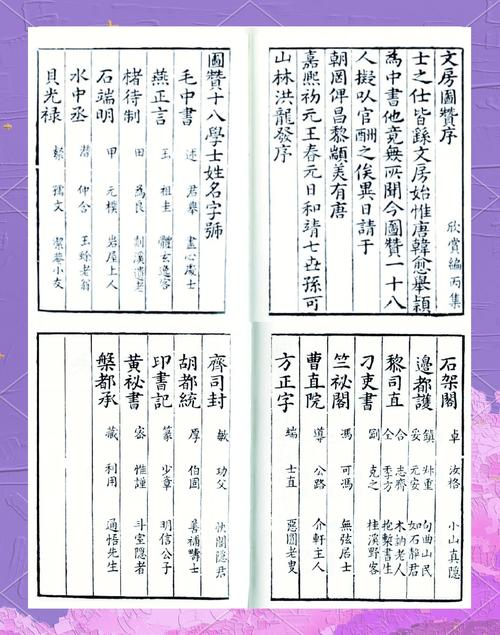 文房圖贊序
欣賞編丙集
士之仕皆繇文房始惟唐韓愈舉穎
為中書他竟無所聞今圖贊一十八
人擬以官酬之俟異日請于
朝罔俾昌黎顓美有唐
嘉熙初元王春元日和靖七世孫可
山林洪龍發序
圖贊十八學士姓名字號
毛中書 述 君舉 盡心處士
燕正言 玉 祖圭 體玄逸客
楮待制 田 為良 剡溪遺老
石端明 甲 元樸 岩屋上人
水中丞 潛 仲含 玉蜍老翁
貝光祿 粲 孺文 潔菴小友
石架閣 卓 汝格 小山真隱
邊都護 鎮 叔重 句曲山民
妥 元安 如石靜君
黎司直 合 志齊 木訥老人
仝 季方 抱槧書生
刁吏書 劉 克之 桂溪野客
竺祕閣 馮 可馮 無弦居士
曹直院 導 公路 介軒主人
方正字 端 士直 惡圓老叟
齊司封 敏 功父 快閣隱君
胡都統 厚 伯固 善補疇士
印書記 篆 少章 明信公子
黃祕書 密 惟謹 斗室隱者
槃都承 藏 利用 通悟先生